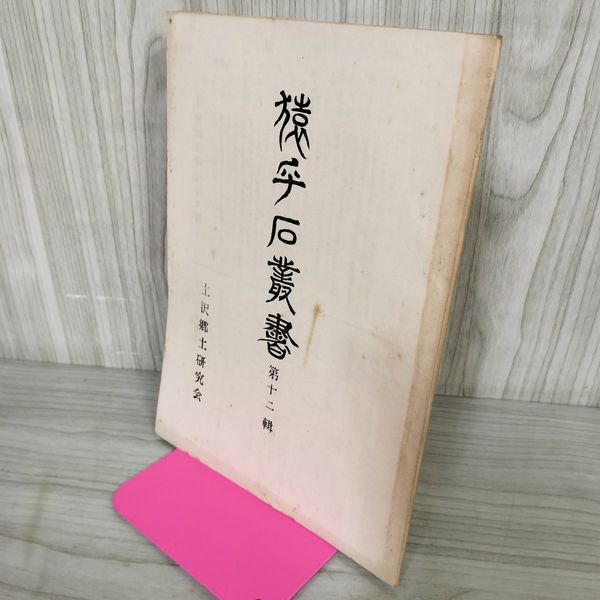 猿ヶ石叢書
第十二輯
土沢郷土研究会